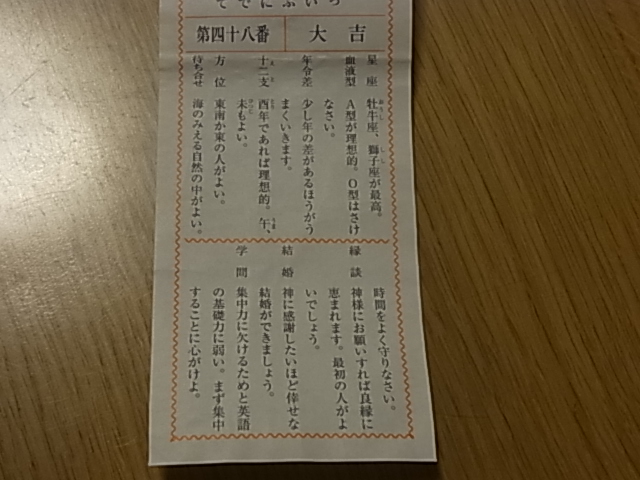 大吉
第四十八番
星座 牡牛座、獅子座が最高。
血液型 A型が理想的。O型はさけ
なさい。
年令差 少し年の差があるほうがう
まくいきます。
十二支 酉年であれば理想的。午、
未もよい。
方位 東南か東の人がよい。
待ち合せ 海のみえる自然の中がよい。
時間をよく守りなさい。
縁談 神様にお願いすれば良縁に
恵まれます。最初の人がよ
いでしょう。
結婚 神に感謝したいほど倖せな
結婚ができましょう。
学問 集中力に欠けるためと英語
の基礎力に弱い。まず集中
することに心がけよ。